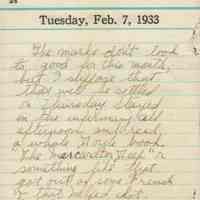 Tuesday, Feb. 7, 1933
The marks don't look
to good for this month,
but I suppose that
that will be settled
on Thursday. Stayed
in the infirmary all
afternoon and read
a whole book.
The "
something like that
got out of some French
I that helped a lot.